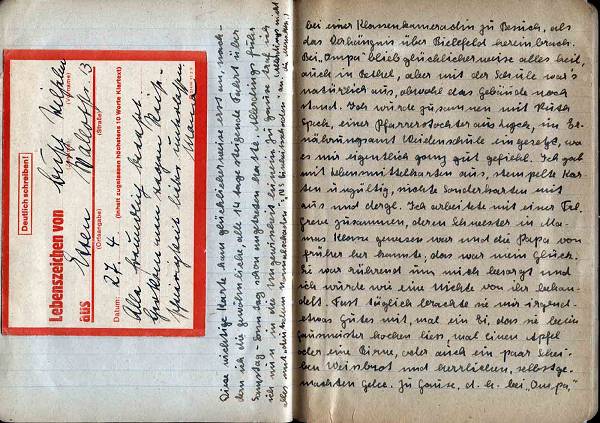 Deutlich schreiben!
Lebenszeichen von
(Vorname)
aus Essen
(Ortsangabe)
(Straße)
Datum: 27. 4. (Inhalt zugelassen höchstens 10 Worte Klartext)
Alle
Mama
Diese wichtige Karte kam glücklicherweise erst an, nach-
dem ich die gewöhnliche, alle 14 Tage steigende Fahrt über
Samstag-Sonntag schon angetreten hatte. Allerdings fuhr
ich nun in die Ungewißheit hinein, zu Hause traf ich
alles mit
bei einer Klassenkameradin zu Besuch, als
das Verhängnis über Bielefeld hereinbrach.
Bei „Ompa“ blieb glücklicherweise alles heil,
auch in Bethel, aber mit der Schule war's
natürlich aus, obwohl das Gebäude noch
stand. Ich wurde zusammen mit Ruth
einer Pfarrerstochter aus im Er-
nährungsamt Weidenschule eingesetzt, wo
es mir eigentlich ganz gut gefiel. Ich gab
mit Lebensmittelkarten aus, stempelte Kar-
ten ungültig, rückte Sonderkarten mit
aus und dergl. Ich arbeitete mit einer Frl.
Greve zusammen, deren Schwester in Ma-
mas Klasse gewesen war und die Papa von
früher her kannte, das war mein Glück.
Sie war rührend um mich besorgt und
ich wurde wie eine Nichte von ihr behan-
delt. Fast täglich brachte sie mir irgend-
etwas Gutes mit, mal ein Ei, das sie beim
Hausmeister kochen ließ, mal einen Apfel
oder eine Birne, oder auch ein paar Schei-
ben Weissbrot und herrlichen, selbstge-
machten Gelee. Zu Hause, d. h. bei „Ompa“